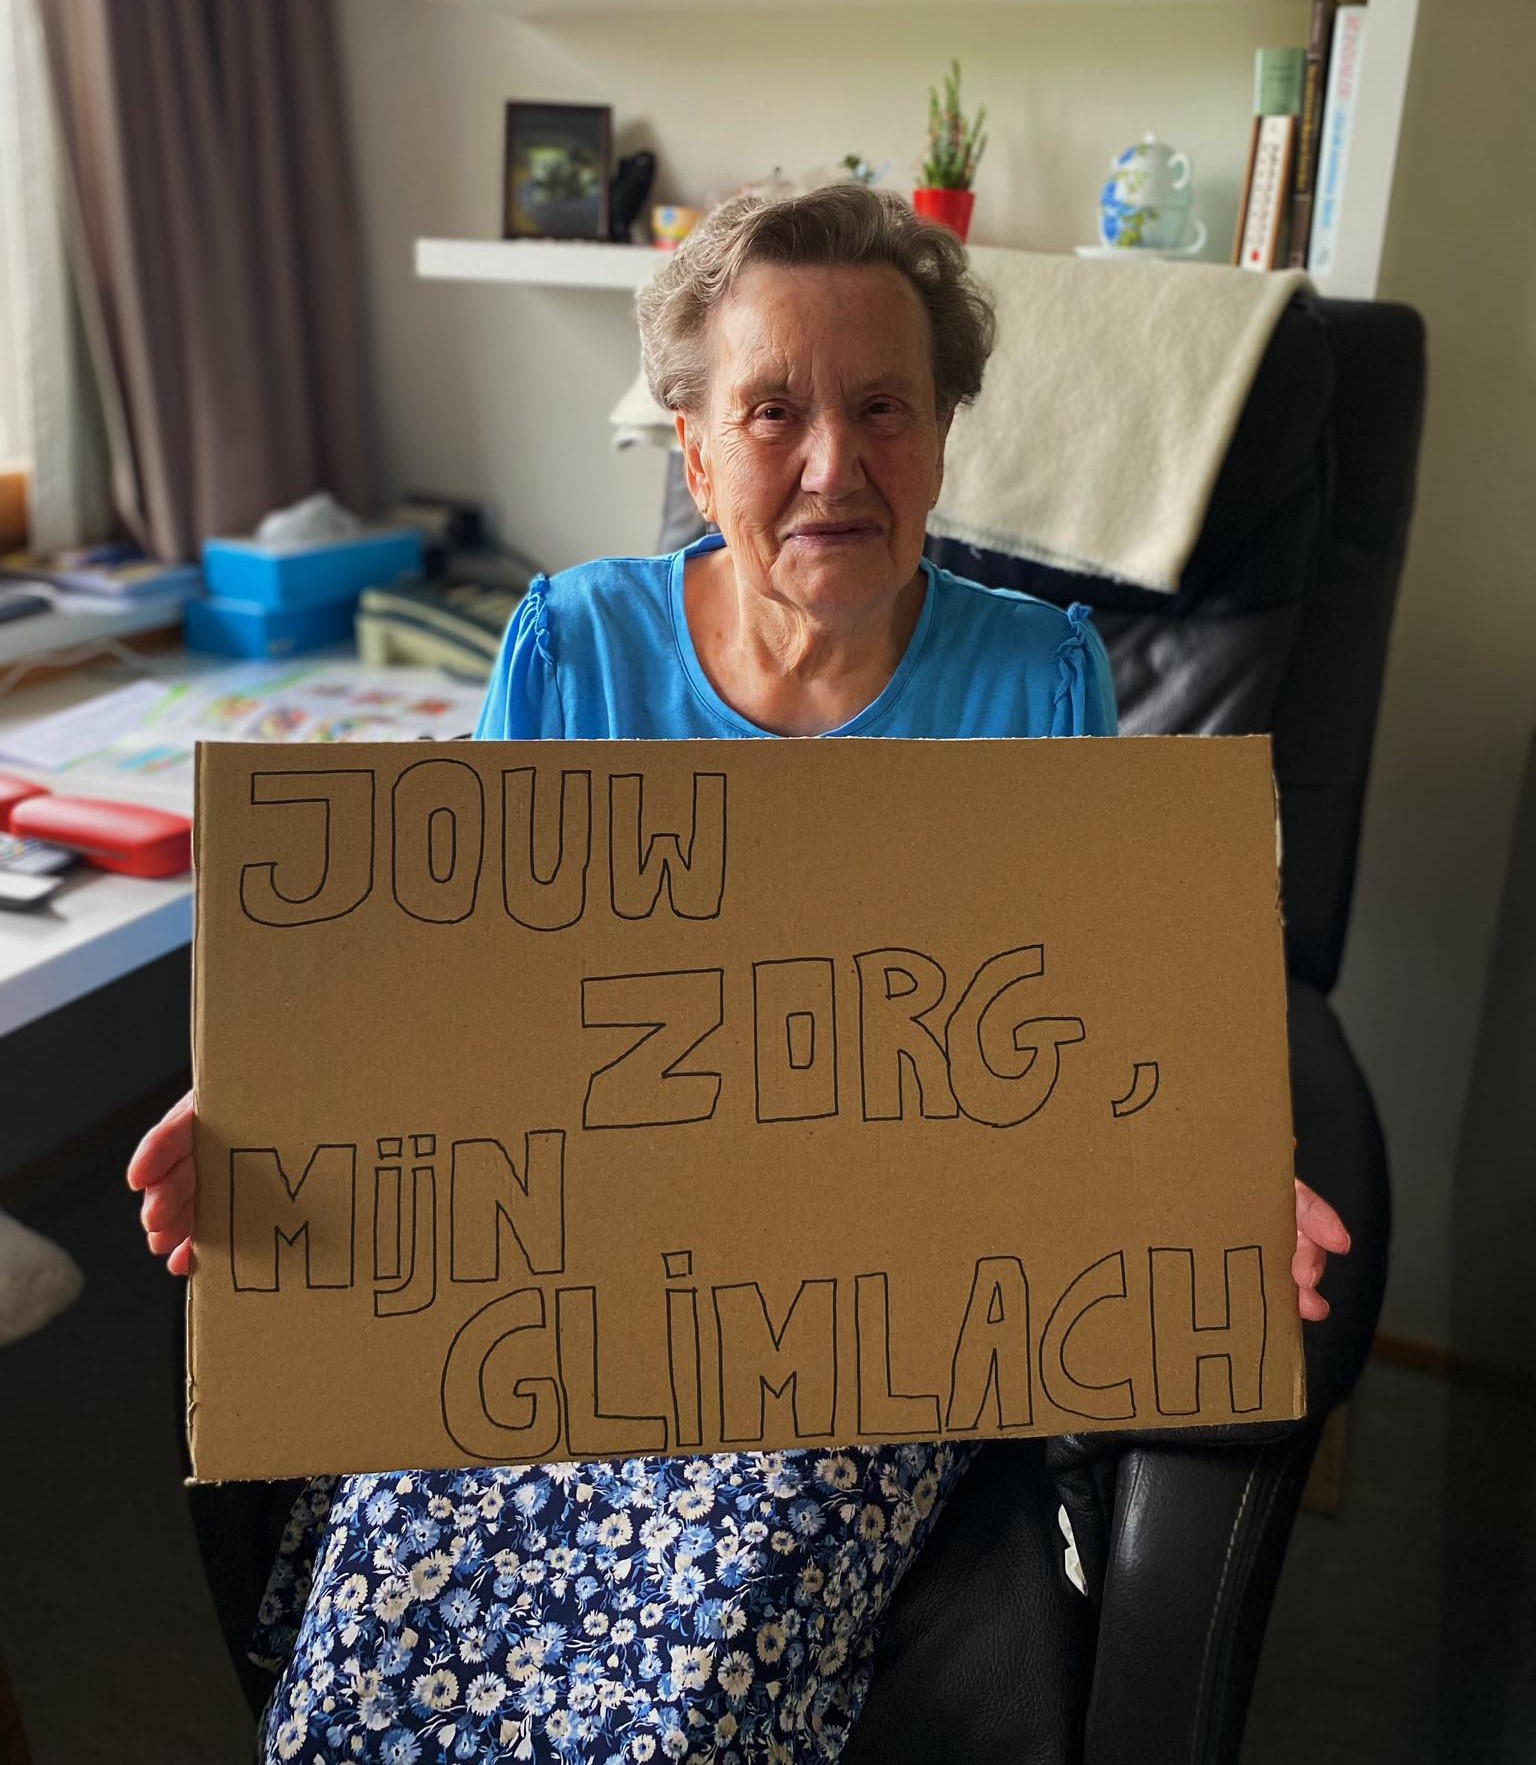 JOUW
ZORG,
MijN
GLiMLACH